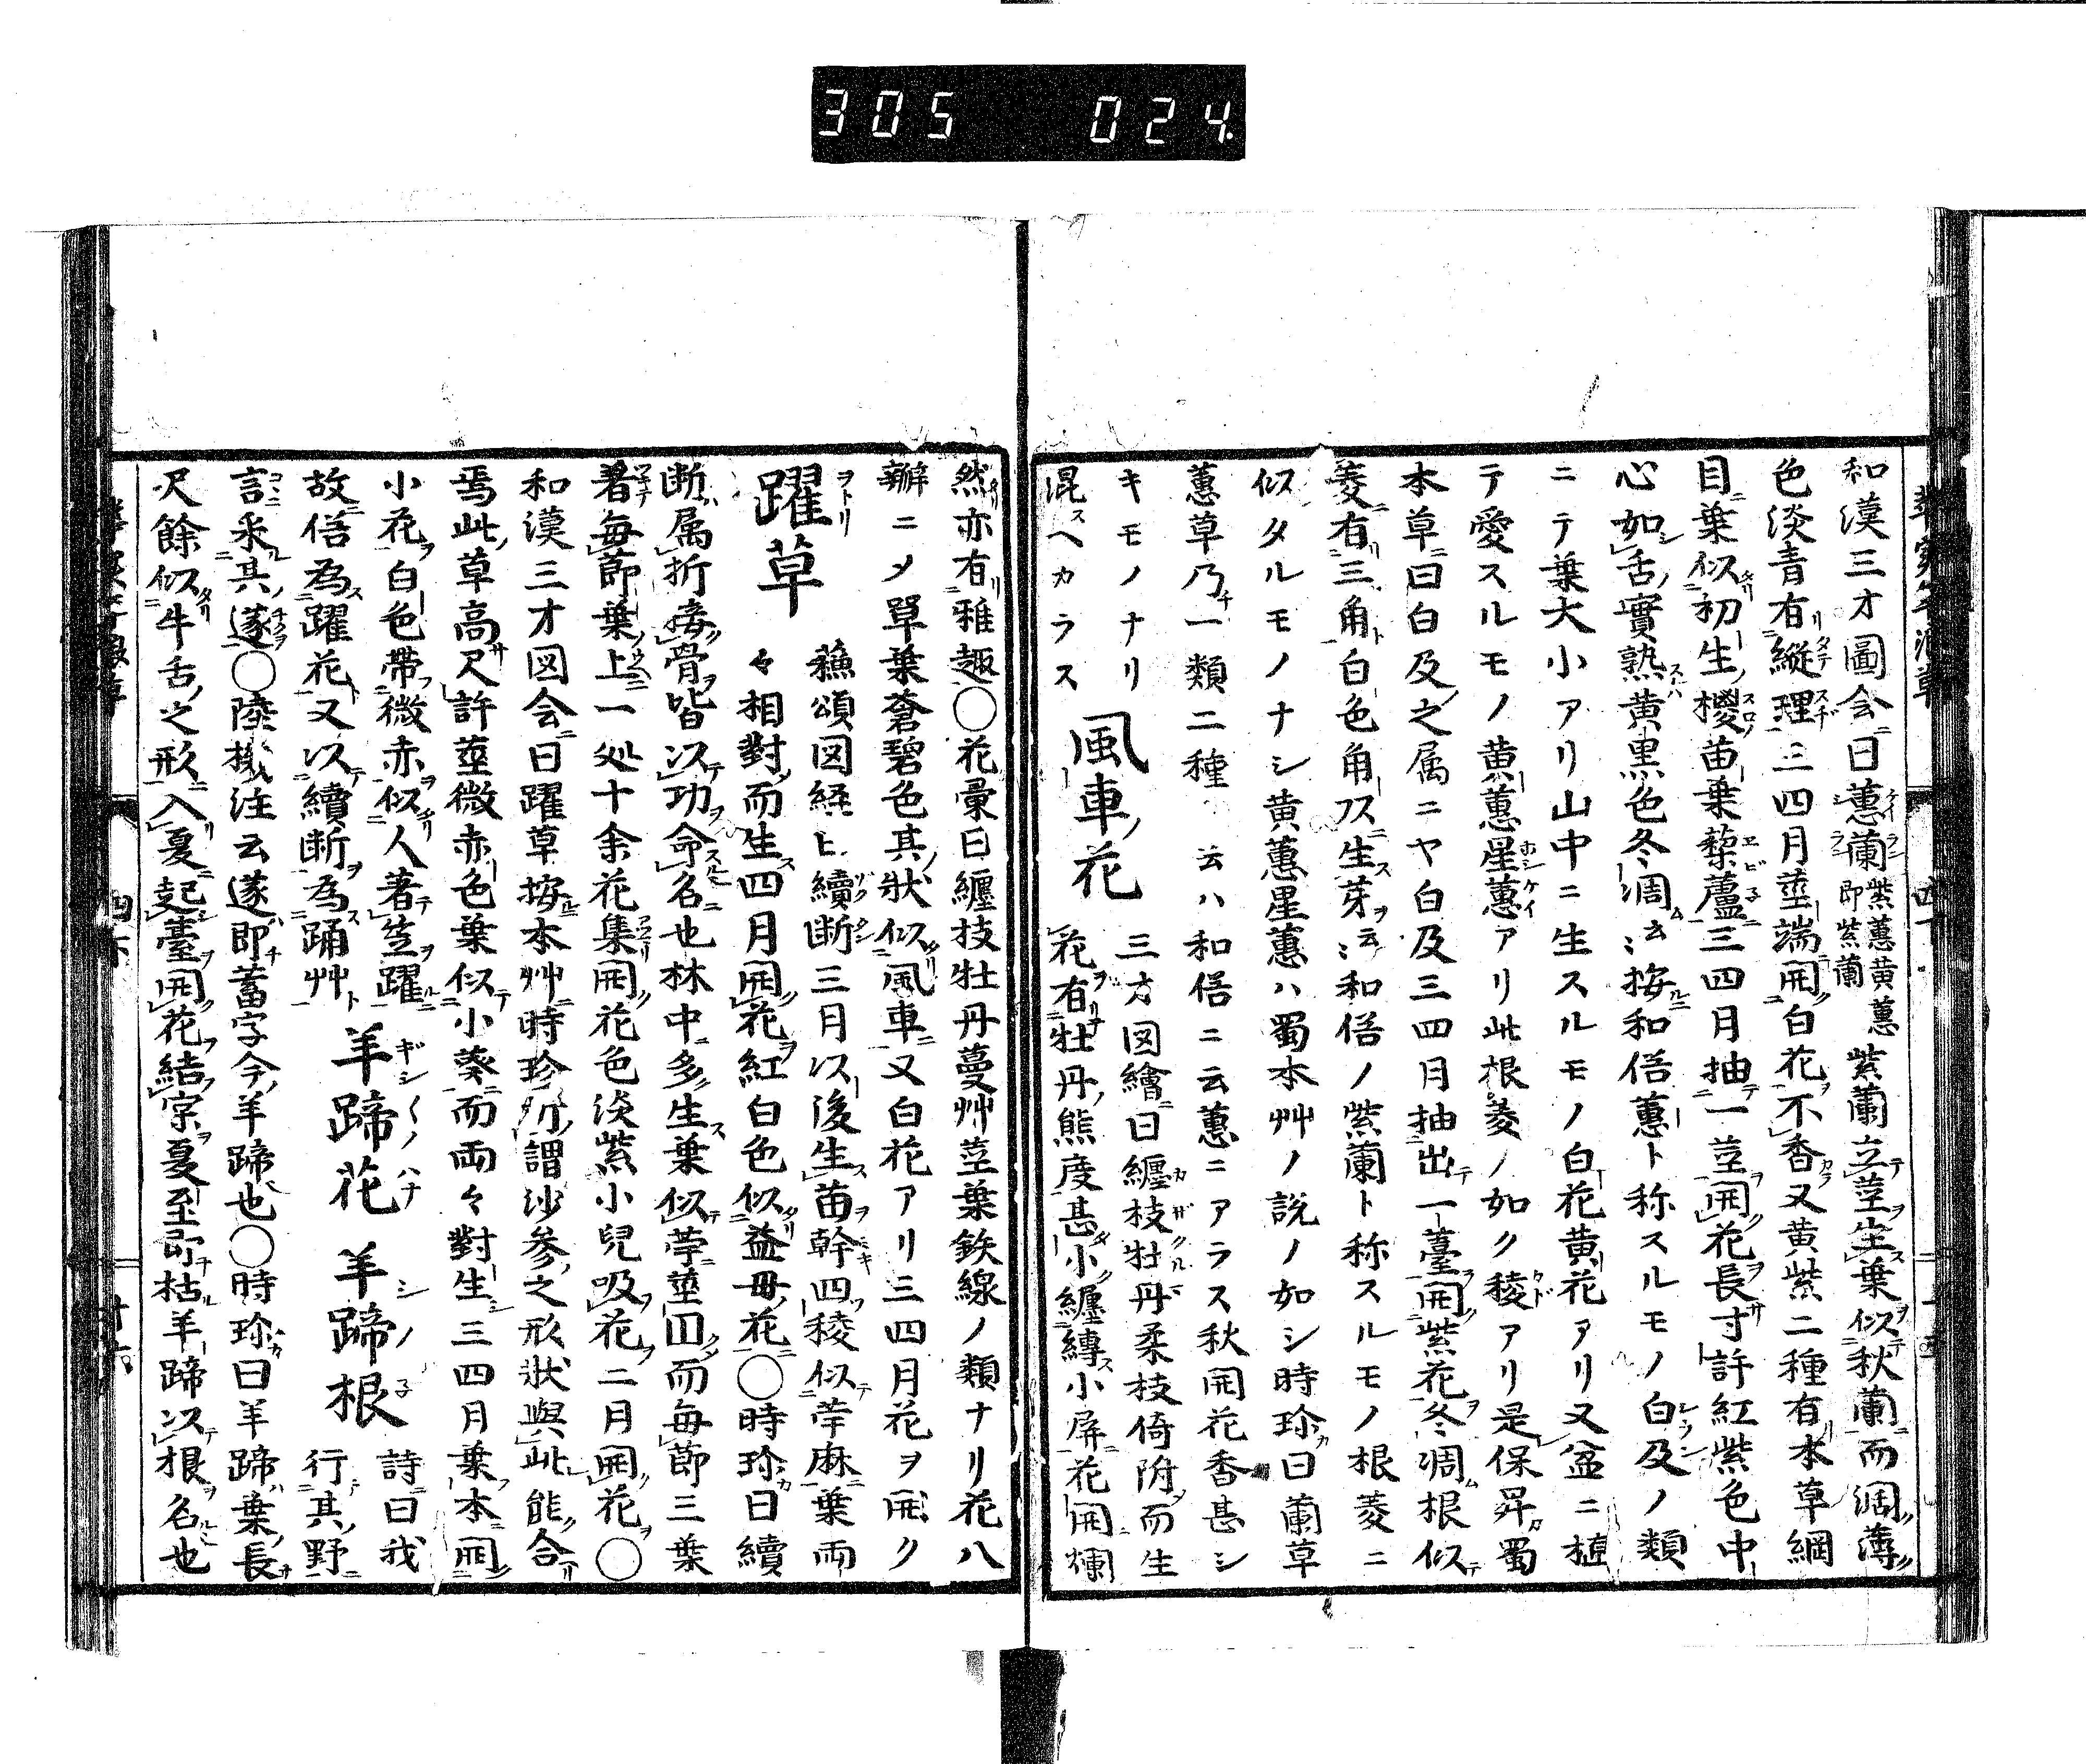 305 024
和漢三才圖会曰蕙蘭紫蕙黄蕙即紫蘭紫蘭立莖生葉似秋蘭而濶薄
色淡青有縦理三四月莖端開白花不香又黄紫二種有本草綱
目葉似初生椶苗葉藜蘆三四月抽一莖開花長寸許紅紫色中
心如舌實熟黄黒色冬凋云々按和俗蕙ト称スルモノ白及ノ類
ニテ葉大小アリ山中ニ生スルモノ白花黄花アリ又盆ニ植
テ愛スルモノ黄蕙星蕙アリ此根菱ノ如ク稜アリ是保昇蜀
本草曰白及之属ニヤ白及三四月抽出一薹開紫花冬凋根似
菱有三角白色角頭生芽云々和俗ノ紫蘭ト称スルモノ根菱ニ
似タルモノナシ黄蕙星蕙ハ蜀本艸ノ説ノ如シ時珍曰蘭草
蕙草乃一類二種云ハ和俗ニ云蕙ニアラス秋開花香甚シ
キモノナリ
混スヘカラス
風車花
三才図繪曰纏枝牡丹柔枝倚附而生
花有牡丹熊度甚小纏縳小屏花開爛
然亦有雅趣〇花彙曰纏枝牡丹蔓艸莖葉鉄線ノ類ナリ花八
瓣ニメ單葉蒼碧色其状似風車又白花アリ三四月花ヲ開ク
躍草
蘓頌図経ニ續断三月以後生苗幹四稜似苧麻葉両
々相對而生四月開花紅白色似益母花〇時珍曰續
断属折接骨皆以功命名也林中多生葉似苧莖四而毎節三葉
著毎節葉上一処十余花集開花色淡紫小兒吸花二月開花〇
和漢三才図会曰躍草按本艸時珍所謂沙参之形状與此能合
焉此草高尺許莖微赤色葉似小葵而両々對生三四月葉本開
小花白色帶微赤似人著笠躍
故俗為躍花又以續断為踊艸
羊蹄花
羊蹄根
詩曰我
行其野
言采其蓫〇陸機注云蓫即蓄字今羊蹄也〇時珍曰羊蹄葉長
尺餘似牛舌之形入夏起薹開花結字夏至即枯羊蹄以根名也